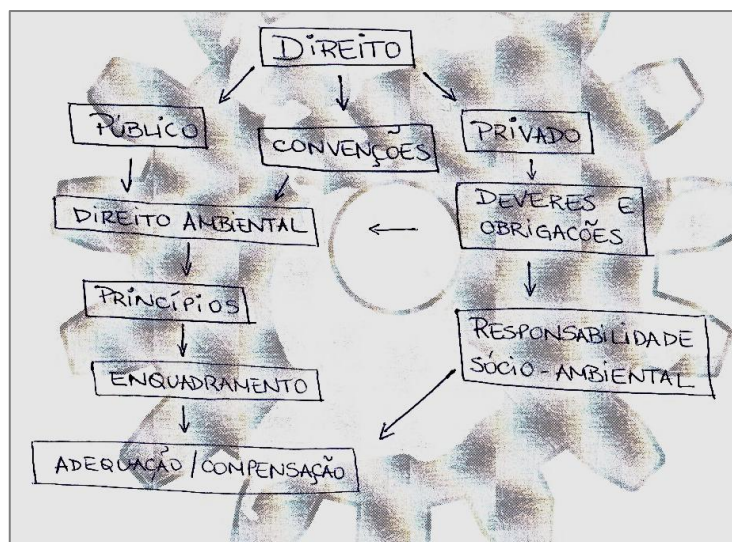 DIREITO
PÚBLICO
CONVENÇÕES
PRIVADO
DIREITO AMBIENTAL
DEVERES E
OBRIGACÕES
PRINCÍPIOS
RESPONSABILIDADE
SÓCIO-AMBIENTAL
ENQUADRAMENTO
ADEQUAÇÃO/COMPENSAÇÃO